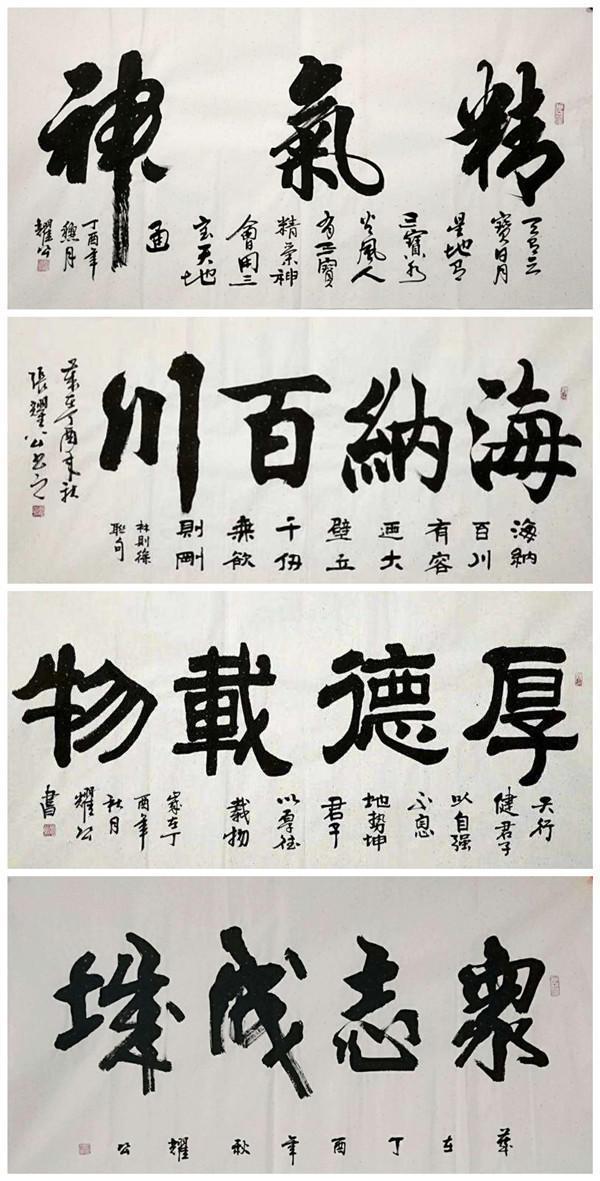 精氣神
天有三
寶日月
星地有
三寶水
火風人
有三寶
精氣神
會用三
寶天地
通
丁酉年
穐月
耀公
海納百川
海納
百川
有容
迺大
壁立
千仞
無欲
則剛
林則徐
聯句
歲在丁酉年秋
張耀公書之
厚德載物
天行
健君子
以自强
不息
地勢坤
君子
以厚德
載物
歲在丁
酉年
秋月
耀公
書
眾志成城
歲在丁酉年秋耀公